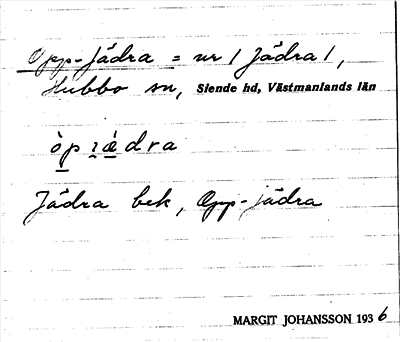 Opp-Jädra = nr / Jädra /,
Hubbo sn, Siende hd, Västmanlands län
òp ɪǽdra
Jädra bek, Opp-jädra
MARGIT JOHANSSON 1936